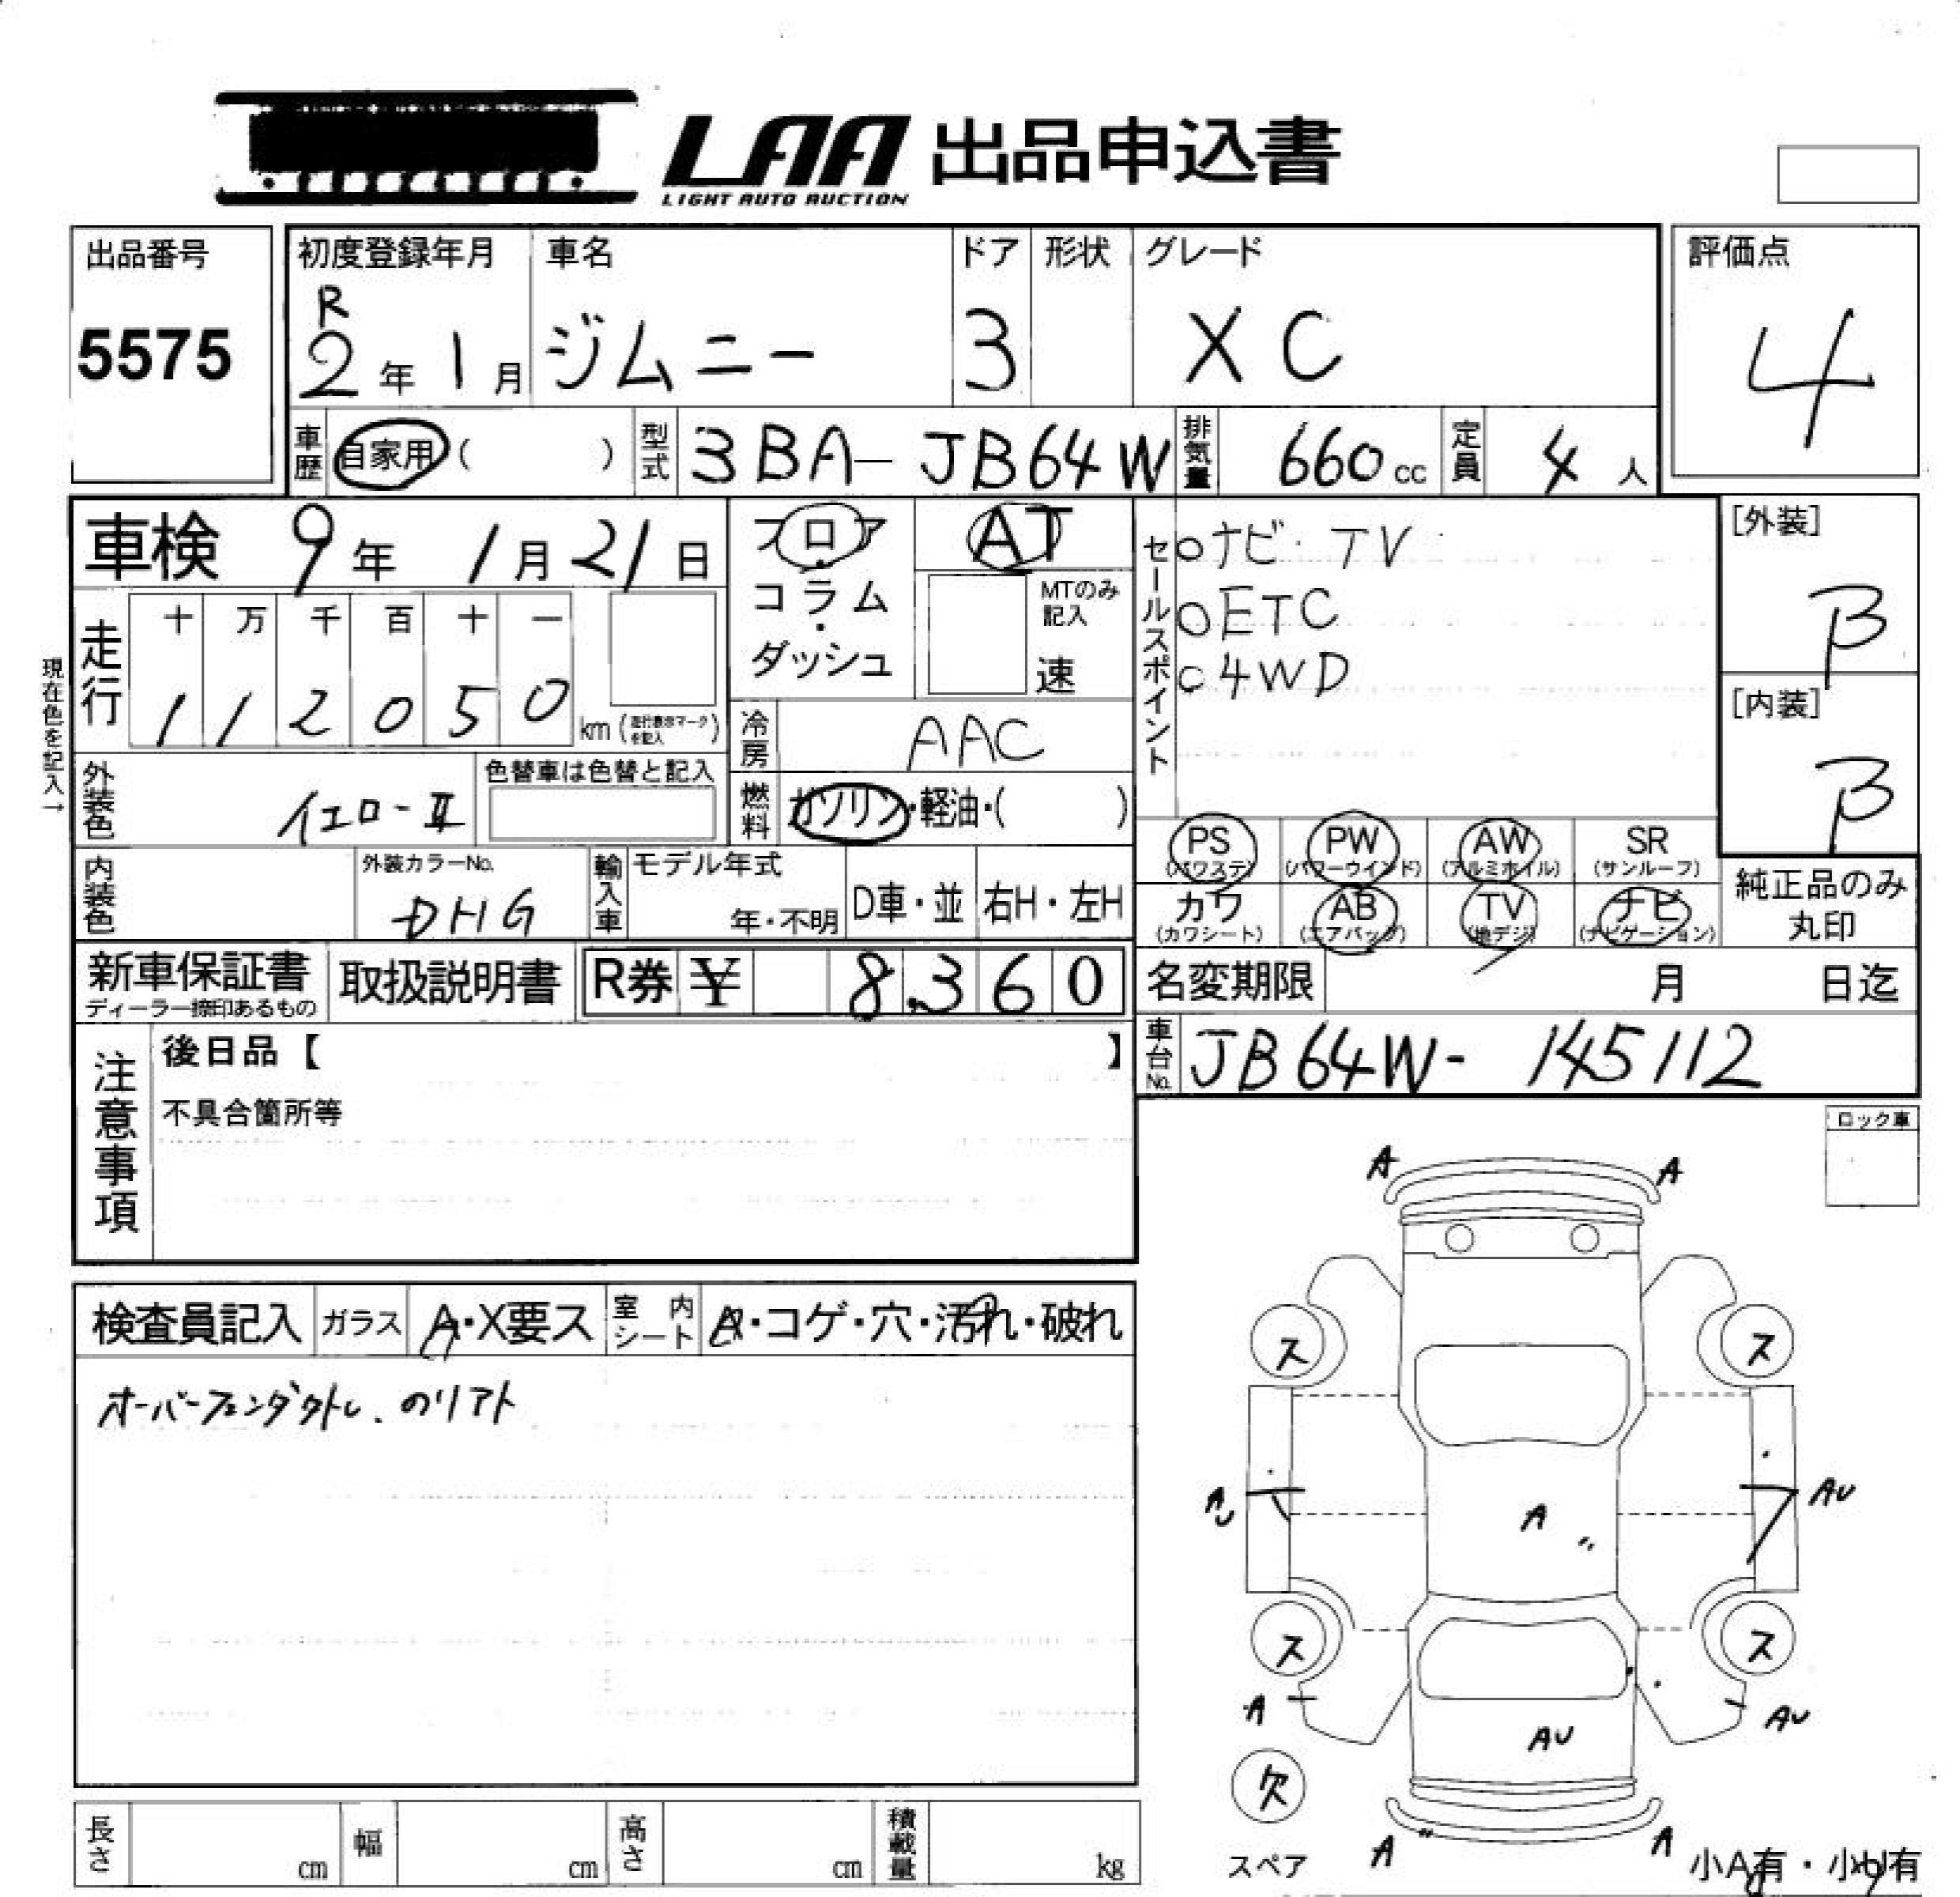 LAA 出品申込書
LIGHT AUTO AUCTION
出品番号
5575
初度登録年月
R
2年 1月
車名
ジムニー
ドア
3
形状
グレード
XC
評価点
4
車歴 自家用 ( )
型式 3BA-JB64W
排気量 660cc
定員 4人
車検 9年 1月 21日
フロア・コラム・ダッシュ
AT
MTのみ記入
速
セールスポイント
○ナビ・TV
○ETC
○4WD
[外装]
B
[内装]
B
現在色を記入→
走行
十 万 千 百 十 一
1 1 2 0 5 0 km (走行表示マークを記入)
冷房 AAC
外装色 イエローⅡ
色替車は色替と記入
燃料 ガソリン・軽油・( )
PS (パワステ)
PW (パワーウインド)
AW (アルミホイル)
SR (サンルーフ)
カワ (カワシート)
AB (エアバッグ)
TV (地デジ)
ナビ (ナビゲーション)
純正品のみ丸印
内装色
外装カラーNo.
DHG
輸入車 モデル年式
年・不明
D車・並
右H・左H
新車保証書
ディーラー捺印あるもの
取扱説明書
R券 ¥ 8,360
名変期限 月 日迄
車台No. JB64W-145112
注意事項
後日品【 】
不具合箇所等
ロック車
検査員記入
ガラス A・X要ス
室内シート A・コゲ・穴・汚れ・破れ
オーバーフェンダ外し、のリアト
A A
ス ス
AU AU
A
ス ス
A AU
AU
欠
スペア
A A
小A有・小U有
長さ cm
幅 cm
高さ cm
積載量 kg